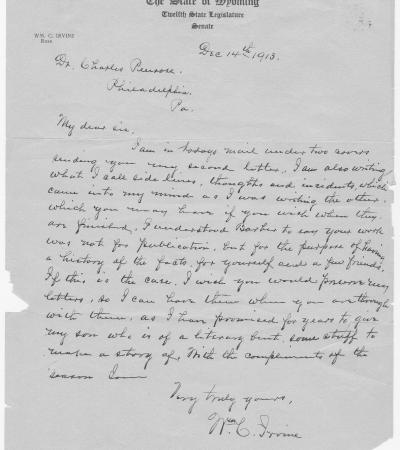 The State of Wyoming
Twelfth State Legislature
Senate
WM. C. IRVINE
Ross
Dec 14th 1913.
Dr. Charles Penrose.
Philadelphia
Pa.
My dear sir.
I am in todays mail under two covers
sending you my second letter, I am also writing
what I call side lines, thoughts and incidents, which
came into my mind as I was writing the other.
which you may have if you wish when they
are finished, I understood Barber to say your work
was not for publication, but for the purpose of having
a history of the facts, for yourself and a few friends,
If this is the case, I wish you would preserve my
letters, so I can have them when you are through
with them, as I have promised for years to give
my son who is of a literary bent, some stuff to
make a story of, With the compliments of the
season I am
Very truly yours,
Wm C. Irvine